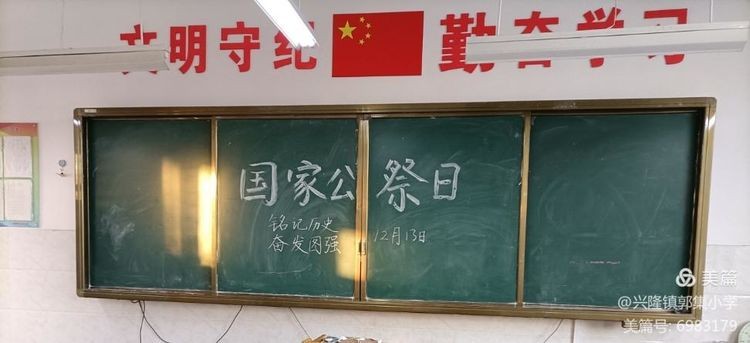 文明守纪 勤奋学习
国家公祭日
铭记历史
奋发图强 12月13日
美篇
@兴隆镇郭集小学
美篇号: 6983179